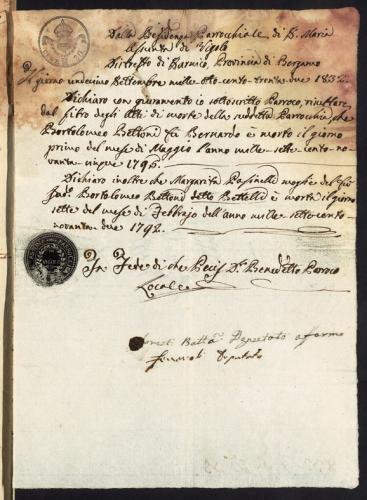 Dalla Residenza Parrocchiale di S. Maria
Assunta di Vigolo
Distretto di Sarnico, Provincia di Bergamo
Il giorno undecimo Settembre mille otto-cento-trenta-due 1832.
Dichiaro con giuramento io sottoscritto Paroco, risultare
dal filtro degli Atti di morte della sudetta Parrochia, che
Bortolomeo Bettoni fu Bernardo è morto il giorno
primo del mese di Maggio l'anno mille-sette-cento-no-
vanta-cinque 1795.
Dichiaro inoltre che Margarita Pasinelli moglie del
Sud.o Bortolomeo Bettoni detto Bettelli è morta il giorno
sette del mese di Febbrajo dell'anno mille-sette-cento-
novanta-due 1792.
In Fede di che Pecis D. Benedetto Paroco
Locale
Batta Deputato affermo
Deputato